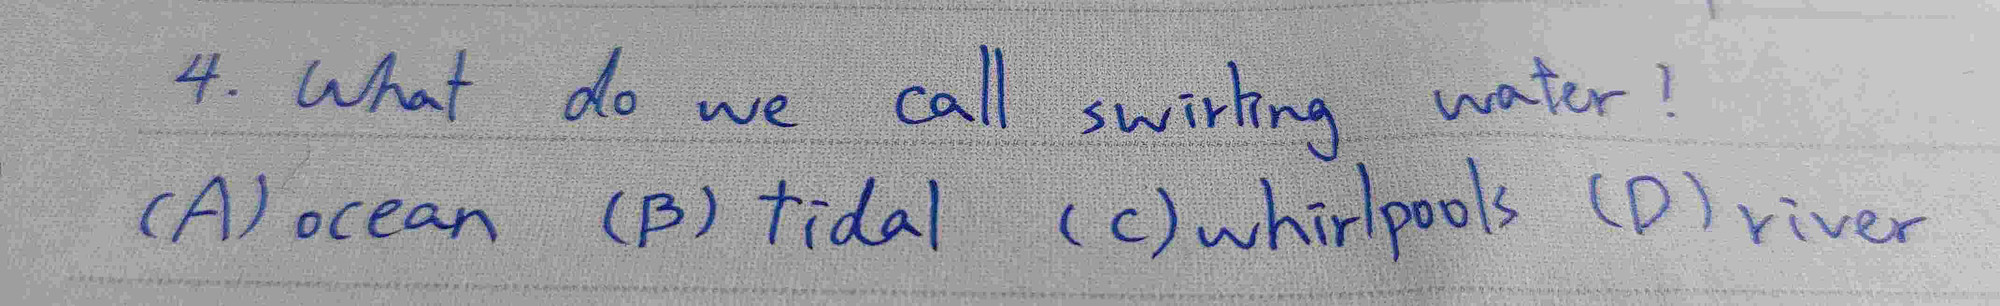 4. What do we call swirling water?
(A) ocean (B) tidal (C) whirlpools (D) river